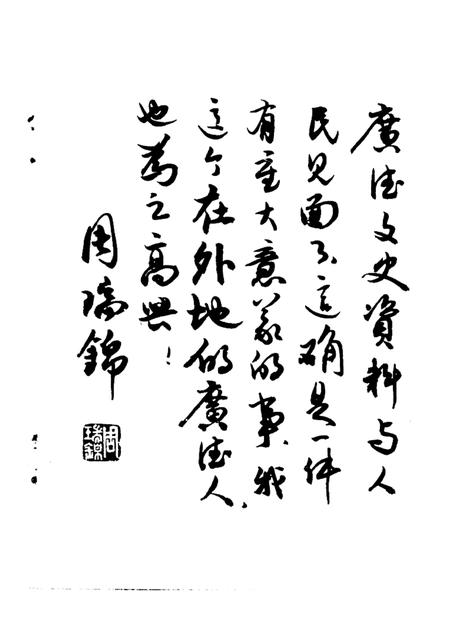 廣德文史資料与人
民見面了,这确是一件
有重大意义的事,我
这个在外地的廣德人,
也为之高興!
周瑞錦